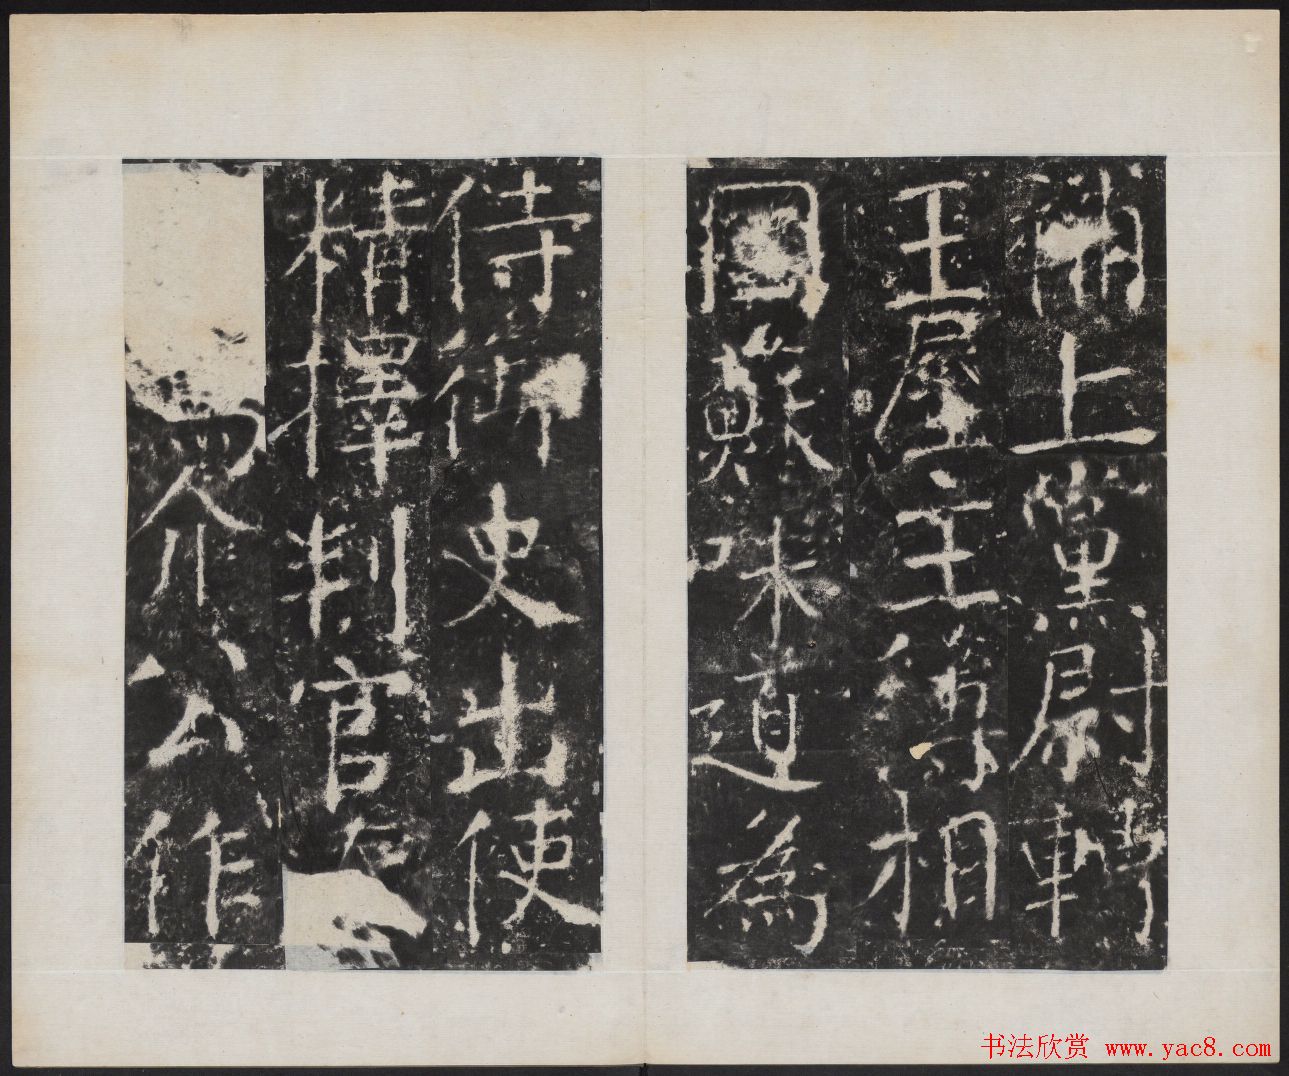 補上黨尉轉
王屋主簿相
國蘇味道為
侍御史出使
精擇判官
介公作
书法欣赏 www.yac8.com